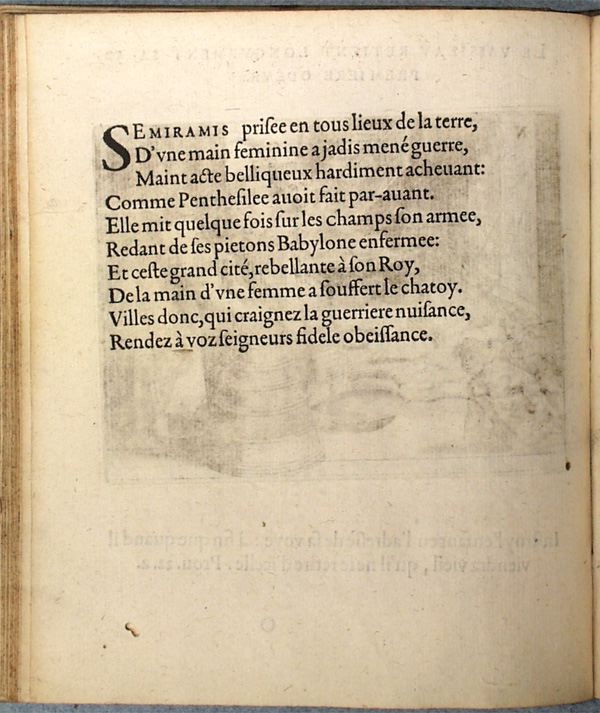 SEMIRAMIS priſee en tous lieux de la terre,
D'vne main feminine a jadis mené guerre,
Maint acte belliqueux hardiment acheuant:
Comme Pentheſilee auoit fait par-auant.
Elle mit quelque fois ſur les champs ſon armee,
Redant de ſes pietons Babylone enfermee:
Et ceſte grand cité, rebellante à ſon Roy,
De la main d'vne femme a ſouffert le chatoy.
Villes donc, qui craignez la guerriere nuiſance,
Rendez à voz ſeigneurs fidele obeiſſance.